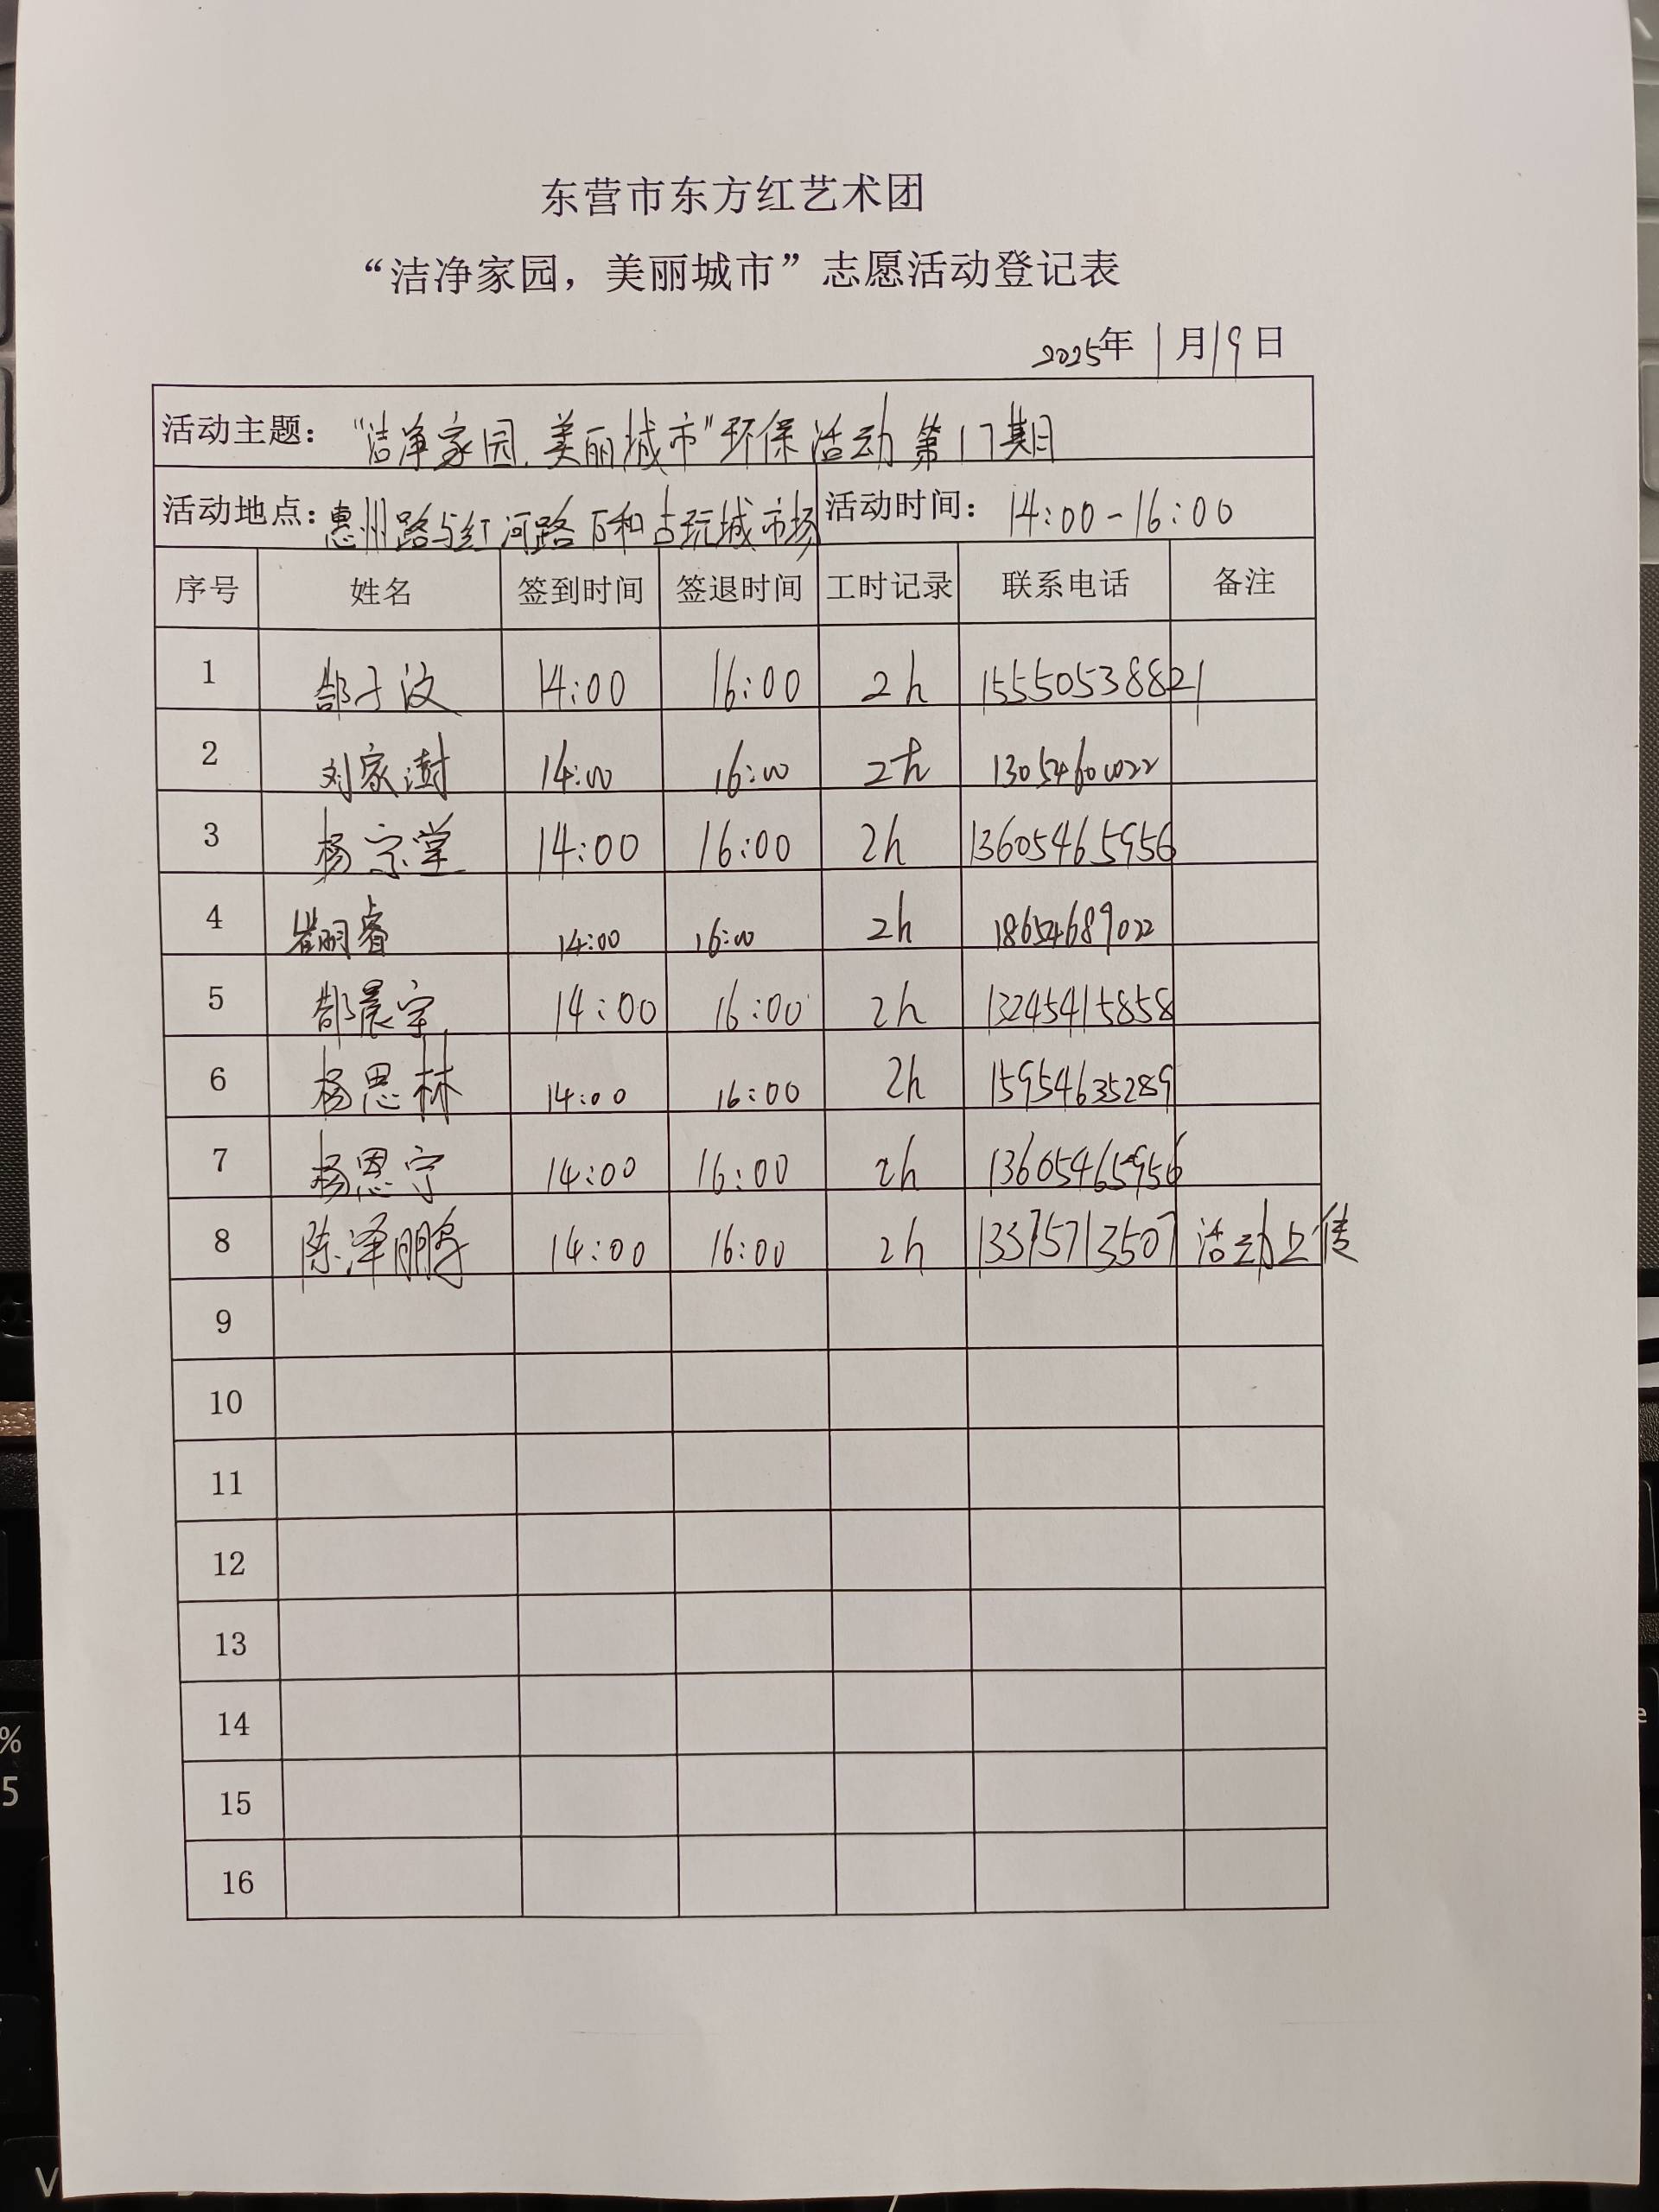 东营市东方红艺术团
“洁净家园，美丽城市”志愿活动登记表
2025年 1月19日
活动主题： “洁净家园.美丽城市”环保活动 第17期
活动地点：惠州路与红河路 万和古玩城市场 活动时间： 14:00-16:00
序号 姓名 签到时间 签退时间 工时记录 联系电话 备注
1 郜子汶 14:00 16:00 2h 15550538821
2 刘家澍 14:00 16:00 2h 13054600022
3 杨宗堂 14:00 16:00 2h 13605465956
4 崔丽睿 14:00 16:00 2h 18654689022
5 郜晨宇 14:00 16:00 2h 13245415858
6 杨思林 14:00 16:00 2h 15954635289
7 杨恩宁 14:00 16:00 2h 13605465956
8 陈泽鹏 14:00 16:00 2h 13375713507 活动上传
9
10
11
12
13
14
15
16
% 
5
V
e